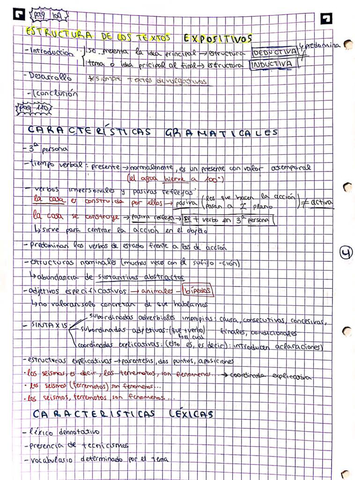 pág 109
ESTRUCTURA DE LOS TEXTOS EXPOSITIVOS
- Introducción se presenta la idea principal → estructura DEDUCTIVA predomina
tema o idea principal al final → estructura INDUCTIVA
- Desarrollo
- Conclusión
pág 110
CARACTERÍSTICAS GRAMATICALES
- 3ª persona
- tiempo verbal: presente → normalmente, es un presente con valor atemporal
(el agua hierve a 100°)
- verbos impersonales y pasivas reflejas
la casa es construida por ellos → pasiva (los que hacen la acción pasan a 2º plano) ≠ activa
la casa se construye → pasiva refleja → se + verbo en 3ª persona
↳ sirve para centrar la acción en el objeto
- predominan los verbos de estado frente a los de acción
- estructuras nominales (muchas veces con el sufijo -ción)
↳ abundancia de sustantivos abstractos
- adjetivos especificativos → animales bípedos
↳ no valoran solo concretan de que hablamos
- SINTAXIS subordinadas adverbiales impropias causa, consecutivas, concesivas,
subordinadas adjetivas (que + verbo) finales, condicionales
coordinadas explicativas (esto es, es decir): introducen aclaraciones
- estructuras explicativas → paréntesis, dos puntos, aposiciones
• los seísmos es decir, los terremotos, son fenómenos → coordinada explicativa
• los seísmos (terremotos) son fenómenos...
• los seísmos, terremotos, son fenómenos...
CARACTERÍSTICAS LÉXICAS
- léxico denotativo
- presencia de tecnicismos
- vocabulario determinado por el tema
4